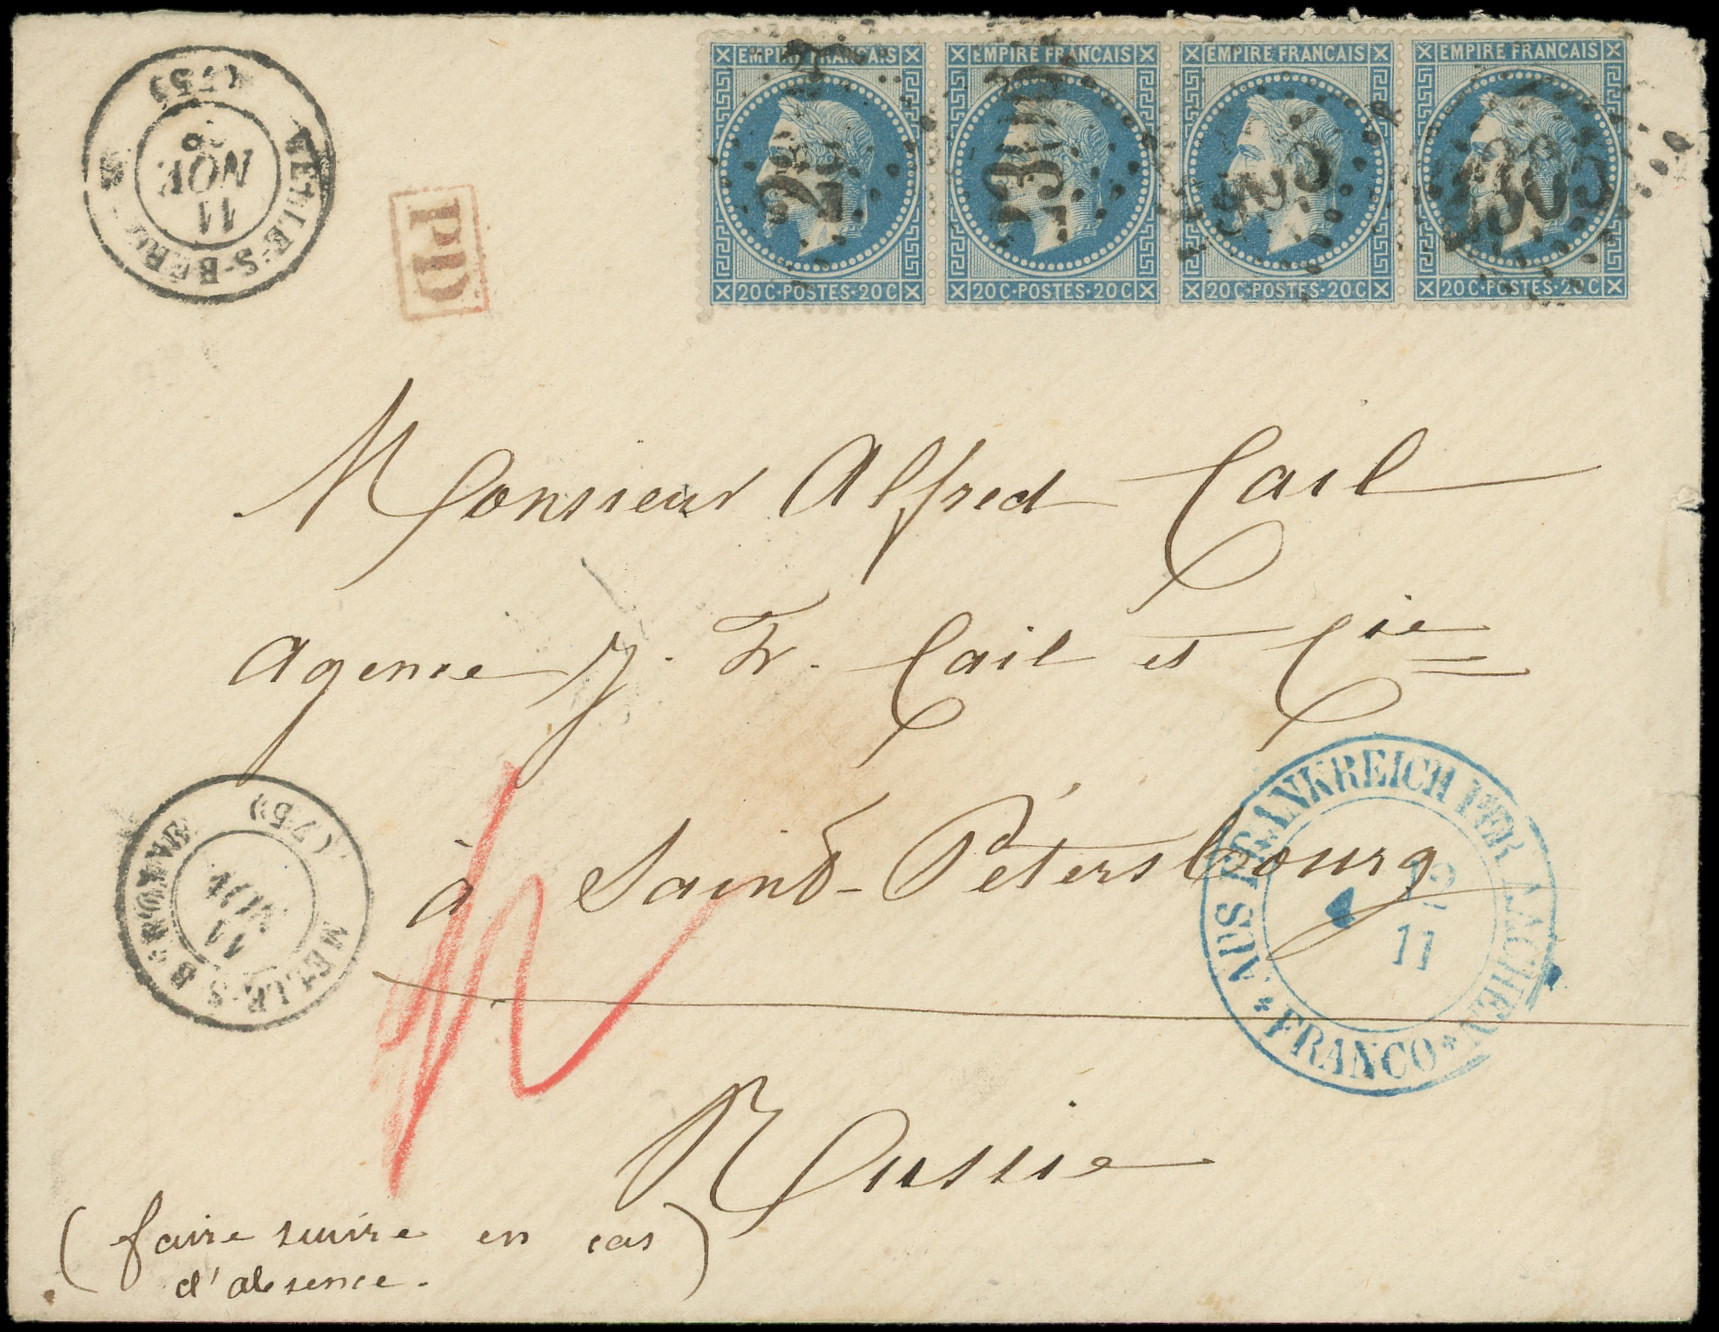 EMPIRE FRANCAIS EMPIRE FRANCAIS EMPIRE FRANCAIS EMPIRE FRANCAIS
20 C·POSTES·20 C 20 C·POSTES·20 C 20 C·POSTES·20 C 20 C·POSTES·20 C
11
NOV.
PD
Monsieur Alfred Cail
Agence J. Fr. Cail et Cie
à Saint-Pétersbourg
Russie
(faire suivre en cas
d'absence.)
MELLE-S-BERONNE
(75)
11
NOV
AUS FRANKREICH PER AACHEN
12
11
*FRANCO*